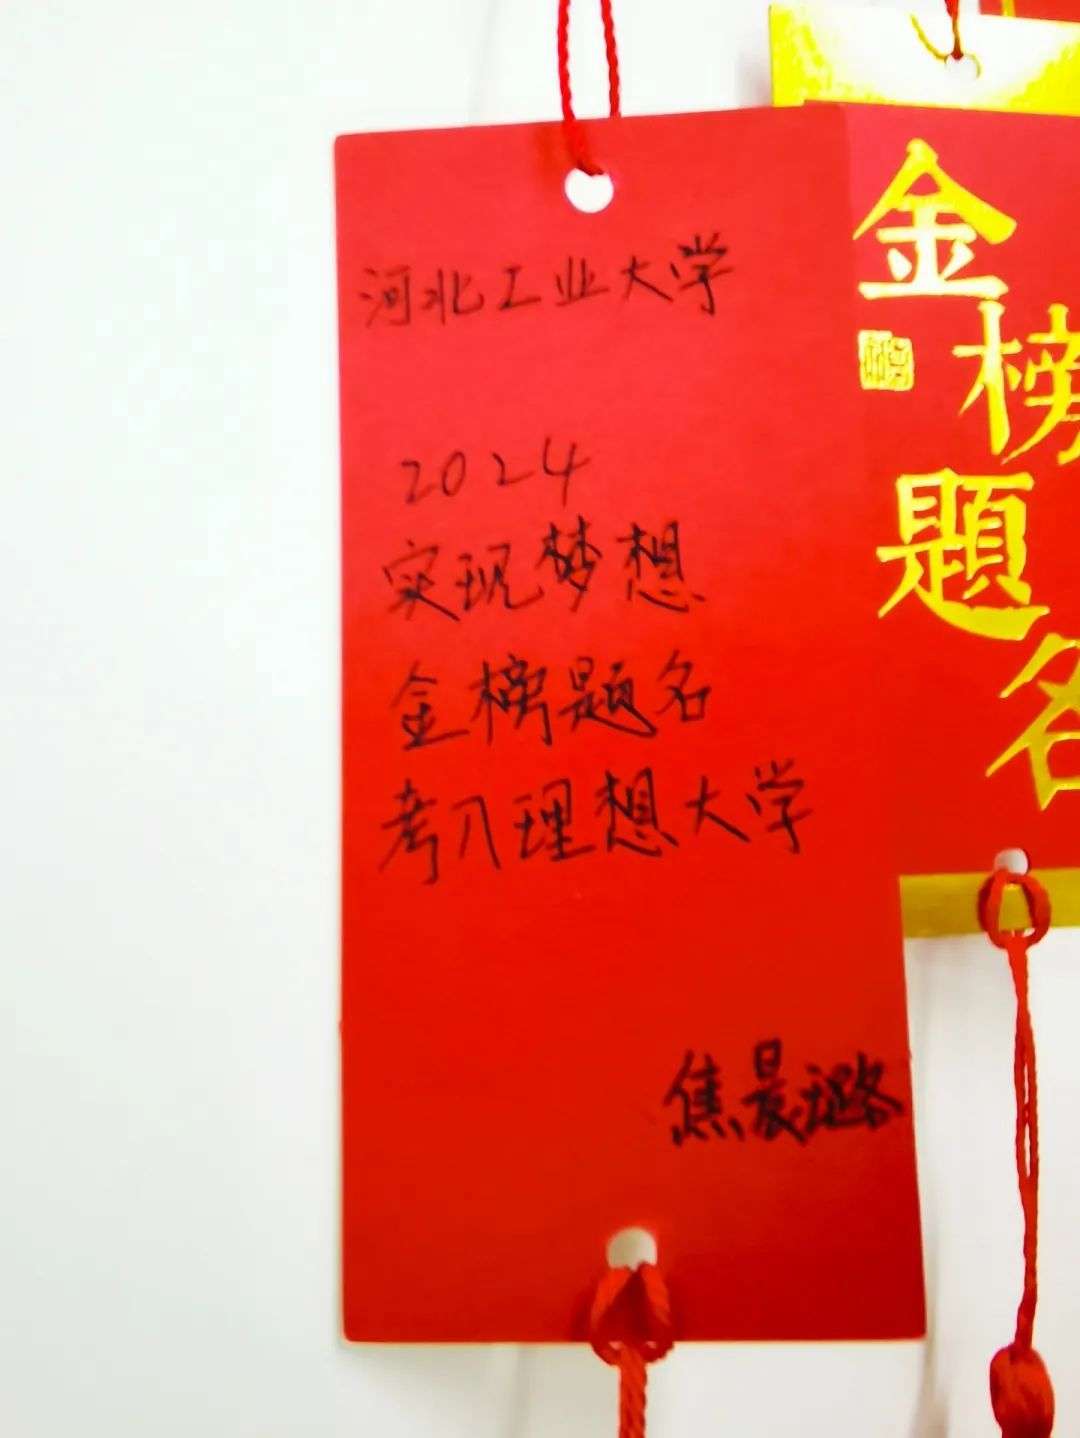 河北工业大学
2024
实现梦想
金榜题名
考入理想大学
焦晨璐
金榜题名